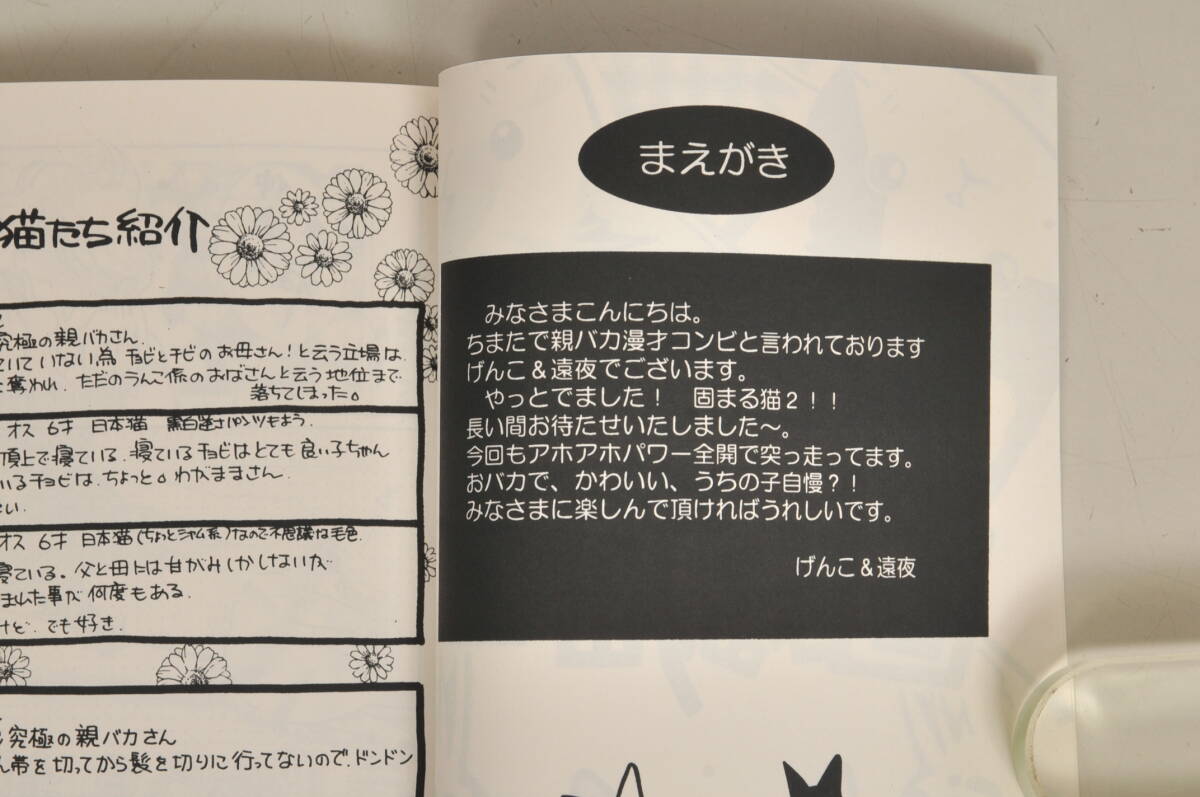 猫たち紹介
究極の親バカさん.
ていていない為 チョビとチビのお母さん!と云う立場は
に奪われ. ただのうんこ係のおばさんと云う地位まで
落ちてしまった。
オス 6才 日本猫
頂上で寝ている. 寝ているチョビはとても良い子ちゃん
いるチョビは. ちょっと。わがままさん.
オス 6才 日本猫(ちょっとシャム系)なので不思議な毛色.
寝ている。父と母には甘がみしかしないが
まれた事が何度もある.
けど. でも好き.
究極の親バカさん
帯を切ってから髪を切りに行ってないので. ドンドン
まえがき
みなさまこんにちは。
ちまたで親バカ漫才コンビと言われております
げんこ＆遠夜でございます。
やっとでました！　固まる猫２！！
長い間お待たせいたしました〜。
今回もアホアホパワー全開で突っ走ってます。
おバカで、かわいい、うちの子自慢？！
みなさまに楽しんで頂ければうれしいです。
げんこ＆遠夜